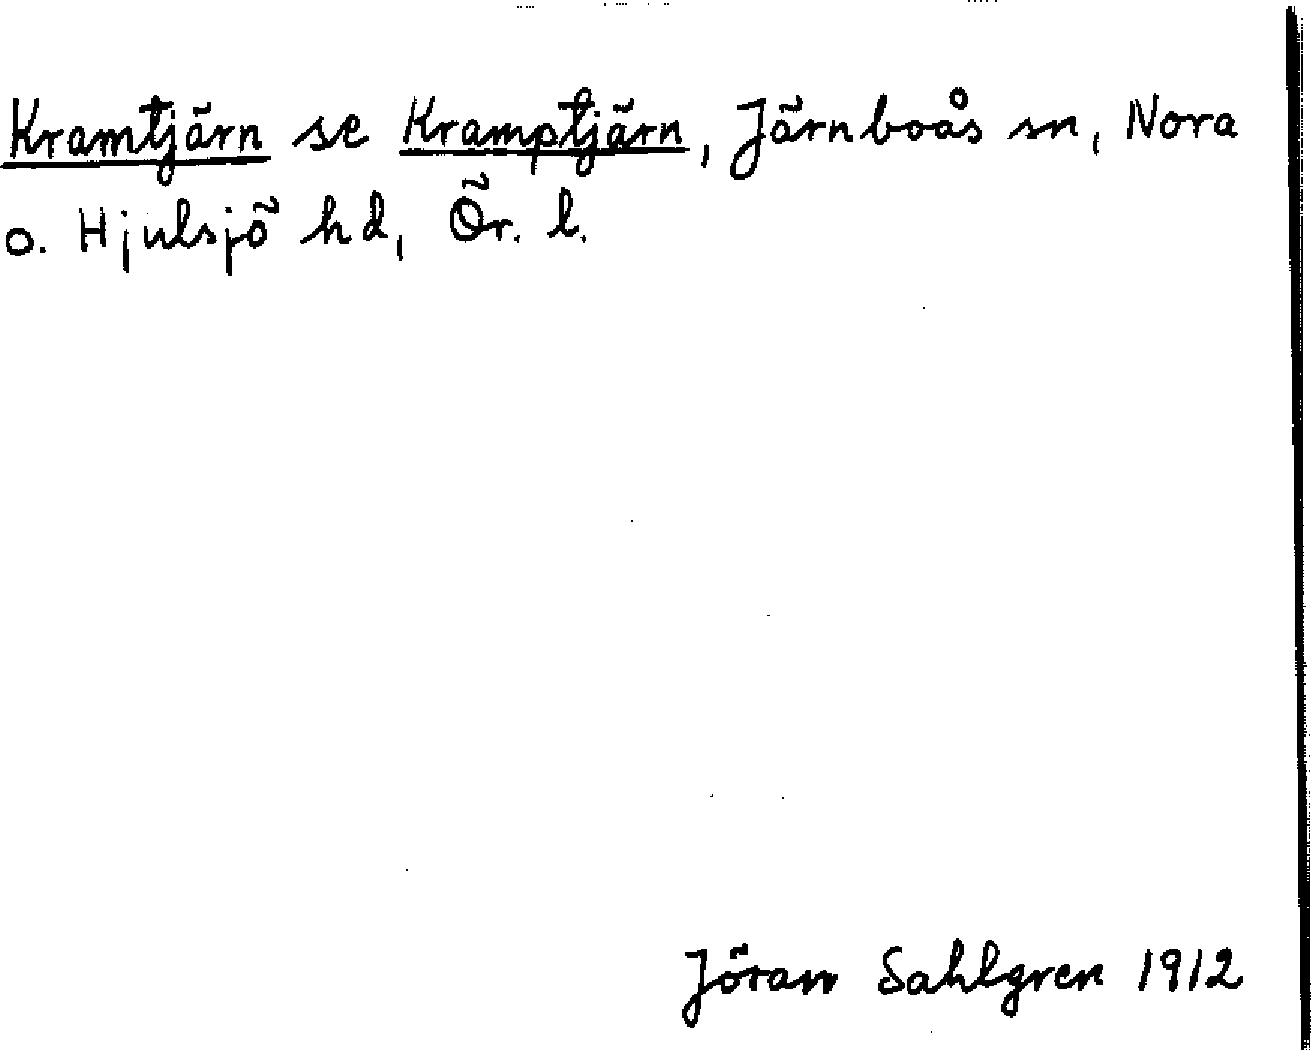 Kramtjärn se Kramptjärn, Järnboås sn, Nora
o. Hjulsjö hd, Ör. l.
Jöran Sahlgren 1912